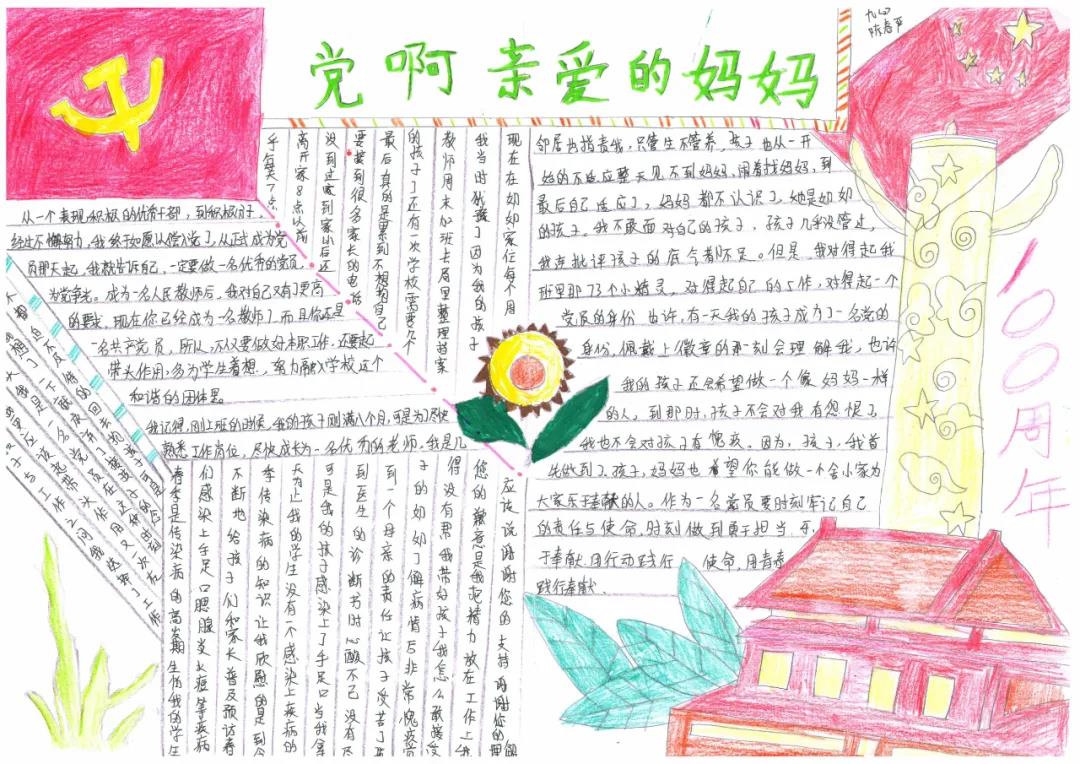 党啊亲爱的妈妈
九(四)
陈春平
100周年
从一个表现积极的优秀干部,到积极分子,
经过不懈努力,我终于如愿以偿入党了,从正式成为党
员那天起,我就告诉自己,一定要做一名优秀的党员,
为党争光。成为一名人民教师后,我对自己又有了更高
的要求,现在你已经成为一名教师了,而且你还是
一名共产党员,所以,不仅要做好本职工作,还要起
带头作用,多为学生着想,努力融入学校这个
和谐的团体里。
我记得,刚上班的时候,我的孩子刚满八个月,可是为了尽快
熟悉工作岗位,尽快成长为一名优秀的老师,我是几
手每天7点
离开家8点以后
没到过家到家以后还
要接到很多家长的电话
最后真的是累到不想顾自己
的孩子了还有一次学校需要几个
教师周末加班去局里整理档案
我当时犹豫了因为我的孩子
现在在如如家住每个月
邻居也指责我,只管生不管养,孩子也从一开
始的不适应整天见不到妈妈,闹着找妈妈,到
最后自己适应了,妈妈都不认识了,她是如如
的孩子。我不敢面对自己的孩子,孩子几乎没管过,
我连批评孩子的底气都不足。但是,我对得起我
班里那73个小精灵,对得起自己的工作,对得起一个
党员的身份,也许,有一天我的孩子成为了一名党的
身份,佩戴上徽章的那一刻会理解我,也许
我的孩子还会希望做一个像妈妈一样
的人,到那时,孩子不会对我有怨恨了,
我也不会对孩子有愧疚。因为,孩子,我首
先做到了,孩子,妈妈也希望你能做一个舍小家为
大家乐于奉献的人。作为一名党员要时刻牢记自己
的责任与使命,时刻做到勇于担当,乐
于奉献,用行动践行使命,用青春
践行奉献.
春季是传染病的高发期生怕我的学生
们感染上手足口腮腺炎水痘等疾病
不断地给孩子们和家长普及预防春
季传染病的知识让我欣慰的是到今
天为止我的学生没有一个感染上疾病的
可是我的孩子感染上了手足口当我拿
到医生的诊断书时心酸不已没有尽
到一个母亲的责任让孩子受苦了
子的如如了解病情后非常愧疚觉
得没有帮我带好孩子我怎么敢接受
您的歉意是我把精力放在工作上我
应该说谢谢您的支持谢谢您的理解